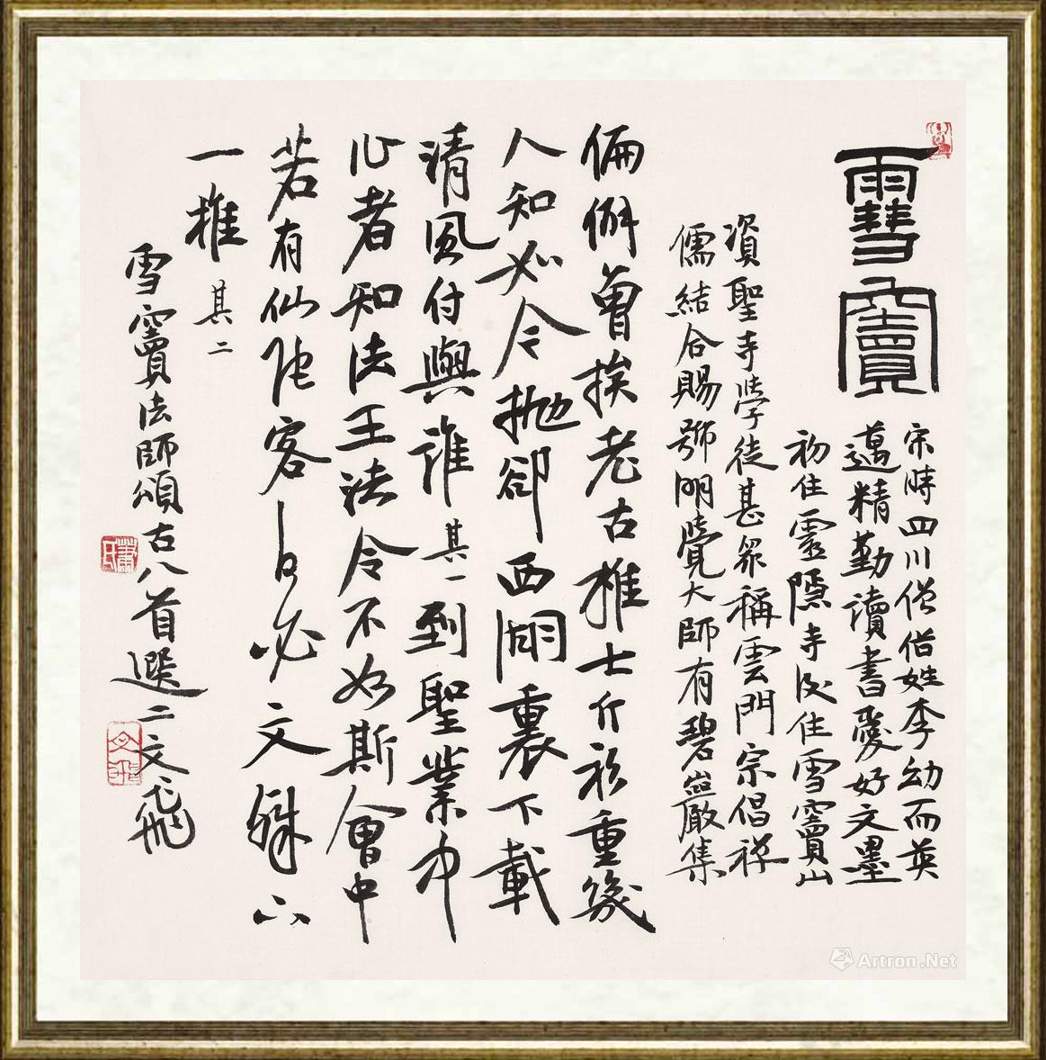 䨮竇
宋時四川僧俗姓李幼而英
邁精勤讀書愛好文墨
初住靈隱寺後住雪竇山
資聖寺學徒甚眾稱雲門宗倡禪
儒結合賜號明覺大師有碧巖集
倆僻曾挨老古椎七斤衫重幾
人知如今拋卻西湖裏下載
清風付與誰其一到聖叢中
作者知法王法令不如斯會中
若有仙陀客何必文殊下
一椎其二
雪竇法師頌古八首選二文飛
文飛
Artron.Net